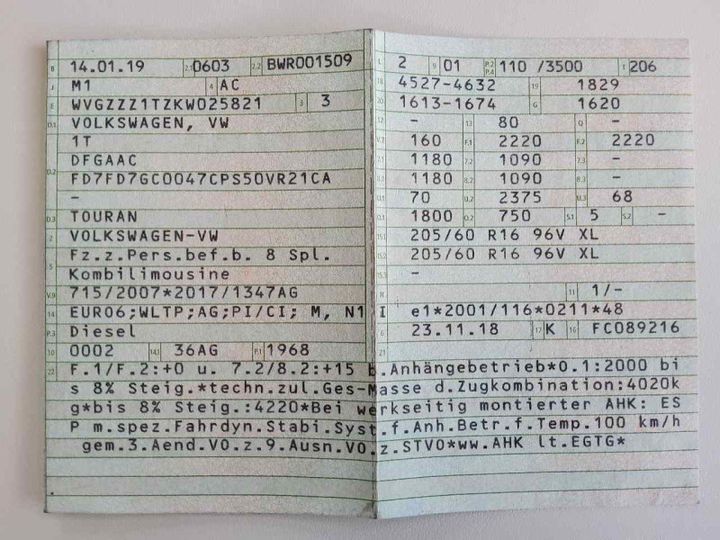 B 14.01.19 2.1 0603 2.2 BWR001509
J M1 4 AC
E WVGZZZ1TZKW025821 3 3
D.1 VOLKSWAGEN, VW
1T
D.2 DFGAAC
FD7FD7GC0047CPS50VR21CA
-
D.3 TOURAN
2 VOLKSWAGEN-VW
5 Fz.z.Pers.bef.b. 8 Spl.
Kombilimousine
V.9 715/2007*2017/1347AG
14 EURO6;WLTP;AG;PI/CI; M, N1 I
P.3 Diesel
10 0002 14.1 36AG P.1 1968
L 2 9 01 P.2 P.4 110 /3500 T 206
18 4527-4632 19 1829
20 1613-1674 G 1620
12 - 13 80 Q -
V.7 160 F.1 2220 F.2 2220
7.1 1180 7.2 1090 7.3 -
8.1 1180 8.2 1090 8.3 -
U.1 70 U.2 2375 U.3 68
O.1 1800 O.2 750 S.1 5 S.2 -
15.1 205/60 R16 96V XL
15.2 205/60 R16 96V XL
15.3 -
R 11 1/-
K e1*2001/116*0211*48
6 23.11.18 17 K 16 FC089216
21
22 F.1/F.2:+0 u. 7.2/8.2:+15 b.Anhängebetrieb*0.1:2000 bi
s 8% Steig.*techn.zul.Ges-Masse d.Zugkombination:4020k
g*bis 8% Steig.:4220*Bei werkseitig montierter AHK: ES
P m.spez.Fahrdyn.Stabi.Syst.f.Anh.Betr.f.Temp.100 km/h
gem.3.Aend.VO.z.9.Ausn.VO.z.STVO*ww.AHK lt.EGTG*